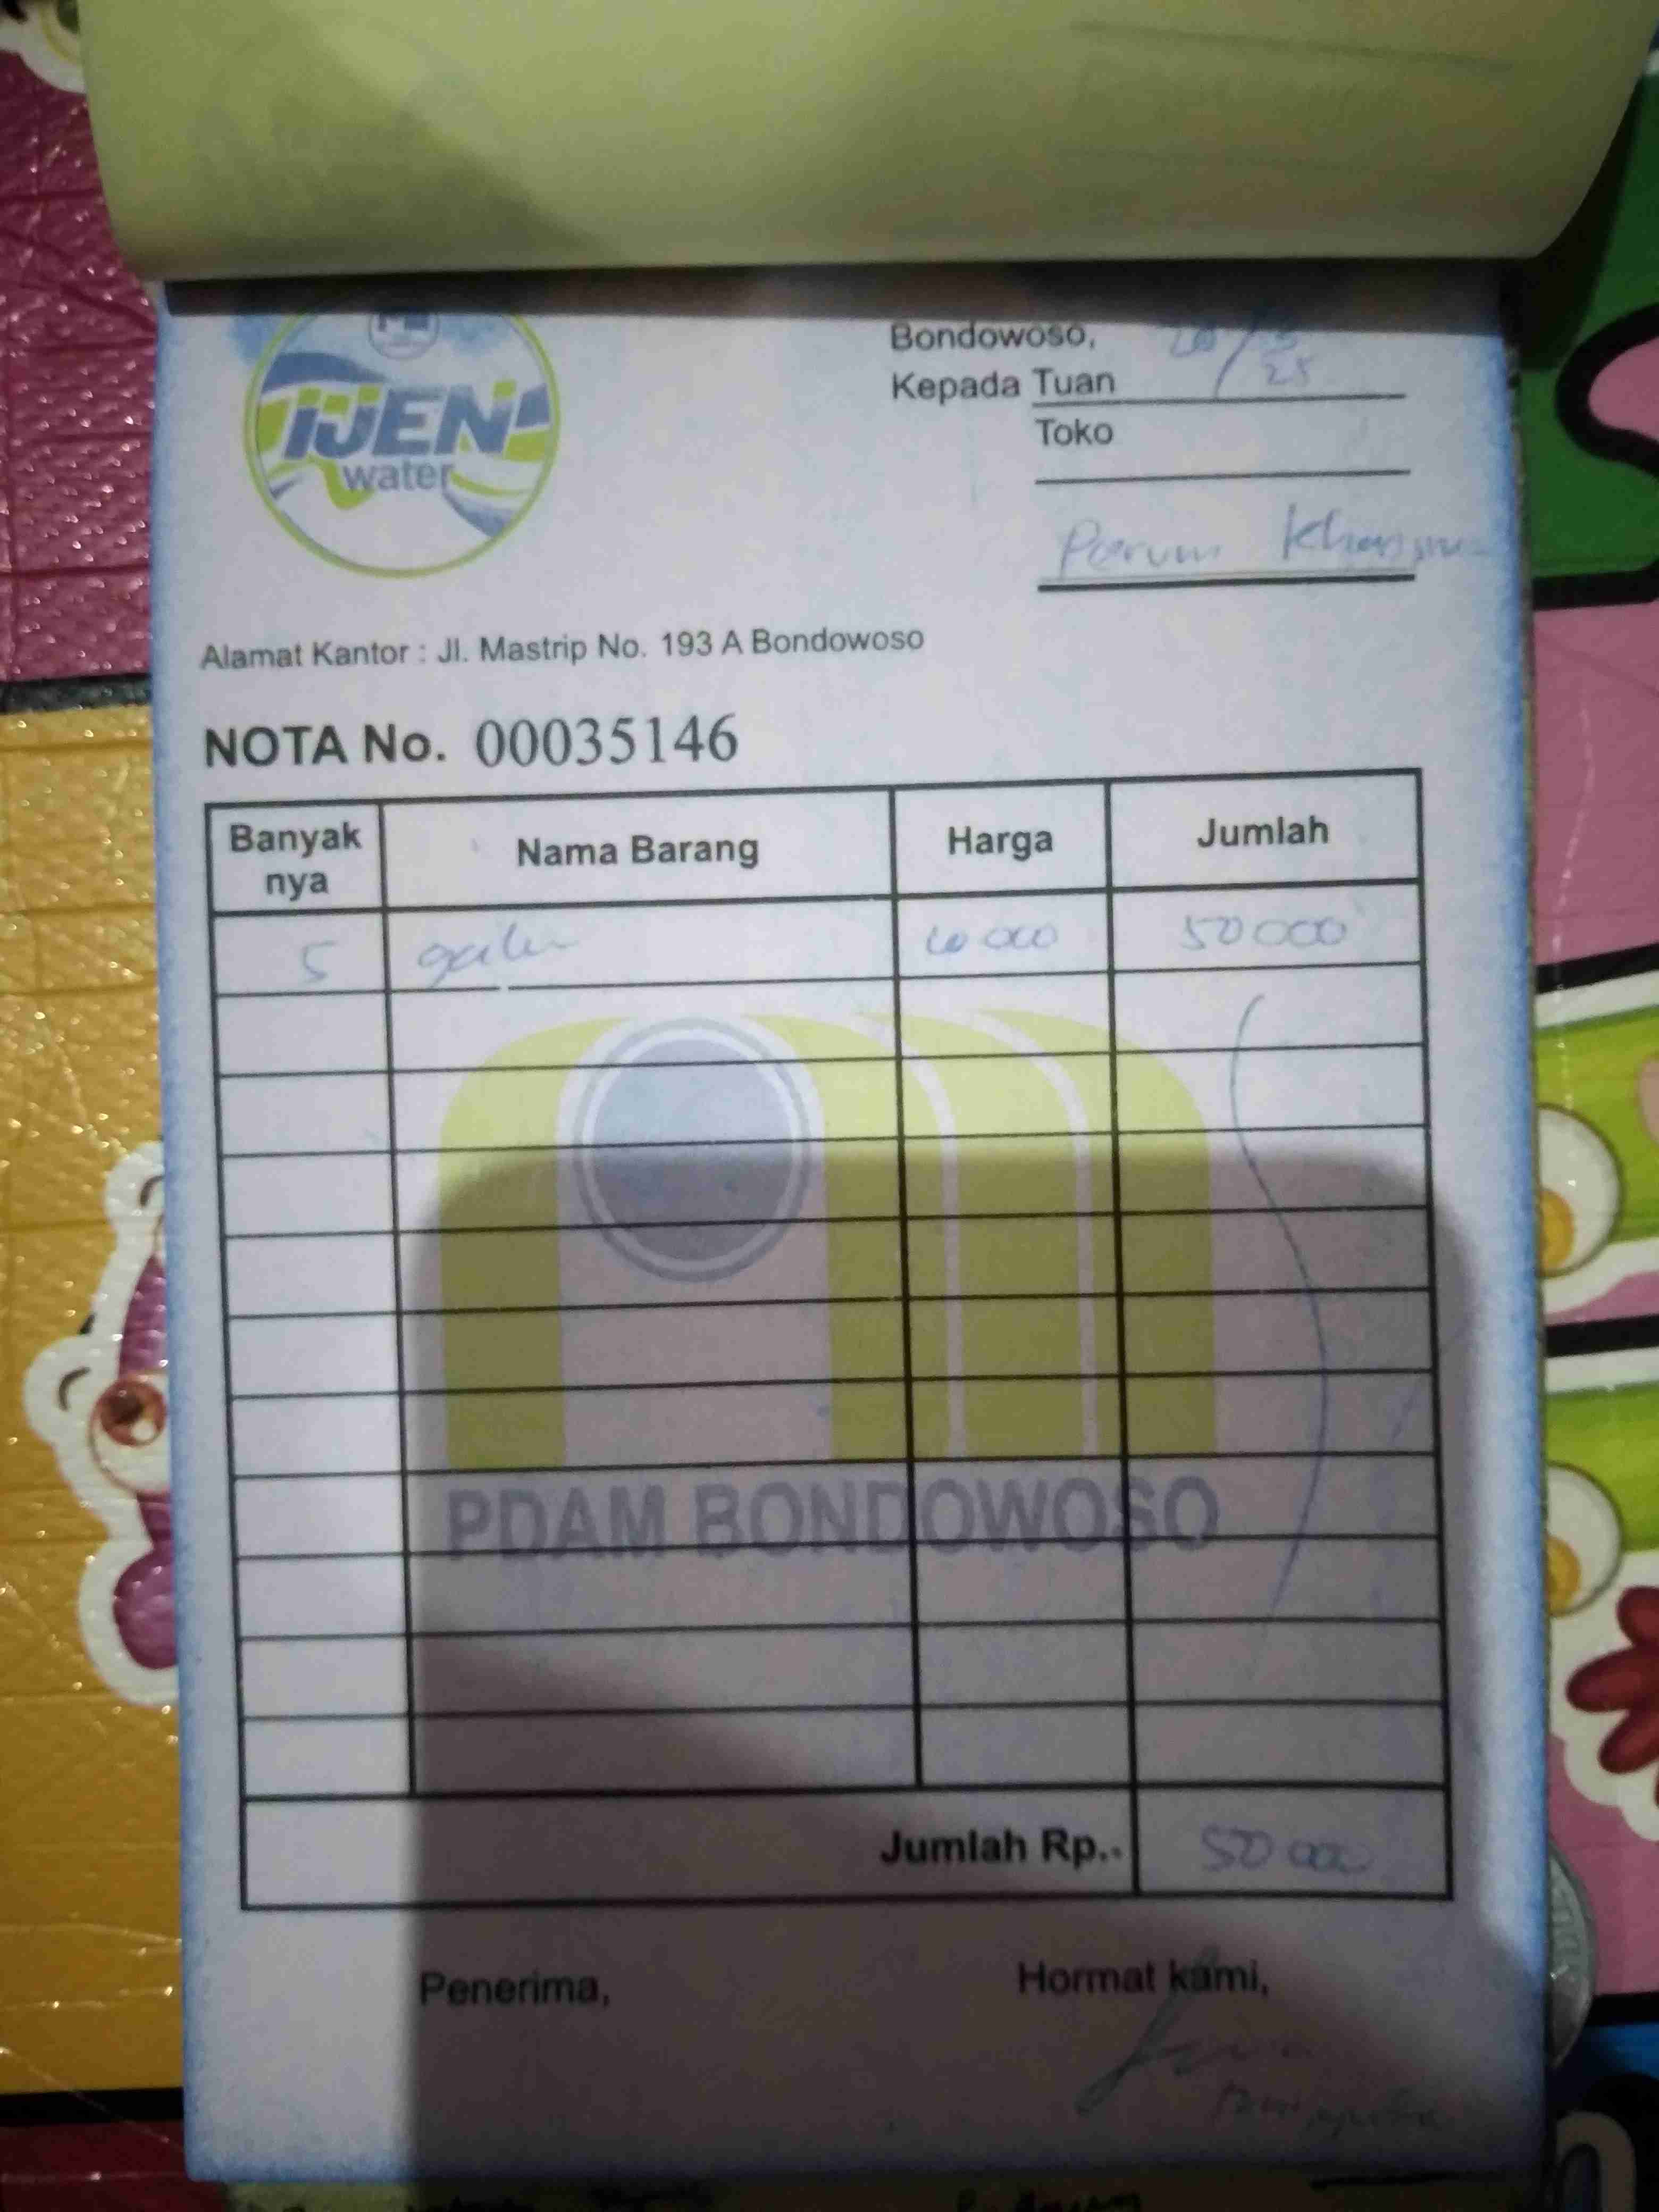 IJEN
water
Bondowoso,
25
Kepada Tuan
Toko
Perum
Alamat Kantor : Jl. Mastrip No. 193 A Bondowoso
NOTA No. 00035146
Banyak nya Nama Barang Harga Jumlah
5 galon 10 000 50 000
PDAM BONDOWOSO
Jumlah Rp.. 50 000
Penerima, Hormat kami,